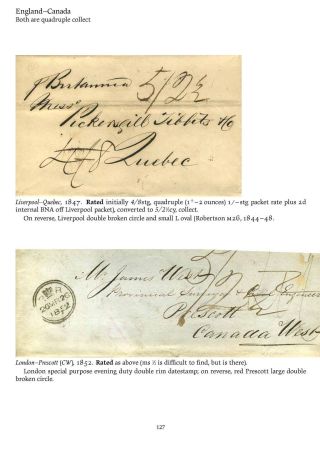 England–Canada
Both are quadruple collect
p Britannia 5/2½
Messrs
Pickersgill Tibbits &Co
Quebec
Liverpool–Quebec, 1847. Rated initially 4/8stg, quadruple (1⁺–2 ounces) 1/–stg packet rate plus 2d
internal BNA off Liverpool packet), converted to 5/2½cy, collect.
On reverse, Liverpool double broken circle and small L oval [Robertson M26, 1844–48.
Mr James West
Provincial Surveyor & Civil Engineer
Prescott
Canada West
20MR20
1852
London–Prescott (CW), 1852. Rated as above (ms ½ is difficult to find, but is there).
London special purpose evening duty double rim datestamp; on reverse, red Prescott large double
broken circle.
127